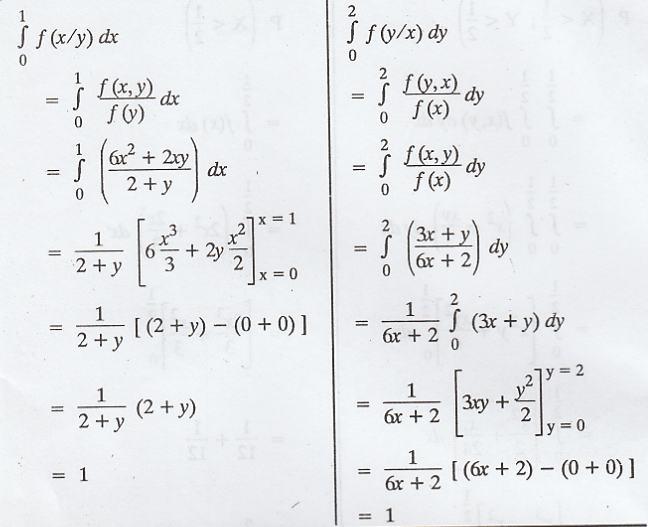 1
∫ f (x/y) dx
0
= 1∫0 f (x, y) / f (y) dx
= 1∫0 ( (6x² + 2xy) / (2 + y) ) dx
= 1/(2 + y) [ 6 x³/3 + 2y x²/2 ] x = 1 x = 0
= 1/(2 + y) [ (2 + y) − (0 + 0) ]
= 1/(2 + y) (2 + y)
= 1
2
∫ f (y/x) dy
0
= 2∫0 f (y, x) / f (x) dy
= 2∫0 f (x, y) / f (x) dy
= 2∫0 ( (3x + y) / (6x + 2) ) dy
= 1/(6x + 2) 2∫0 (3x + y) dy
= 1/(6x + 2) [ 3xy + y²/2 ] y = 2 y = 0
= 1/(6x + 2) [ (6x + 2) − (0 + 0) ]
= 1